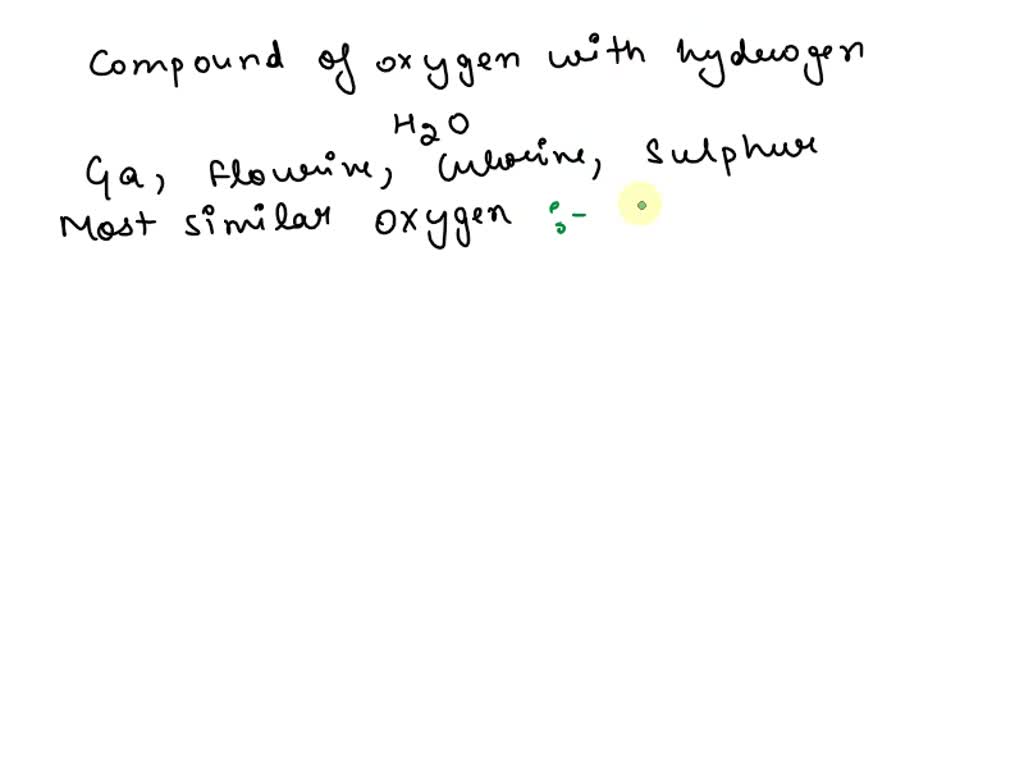 Compound of oxygen with hydrogen
H2O
Ga, flourine, chlorine, Sulphur
Most similar oxygen :-